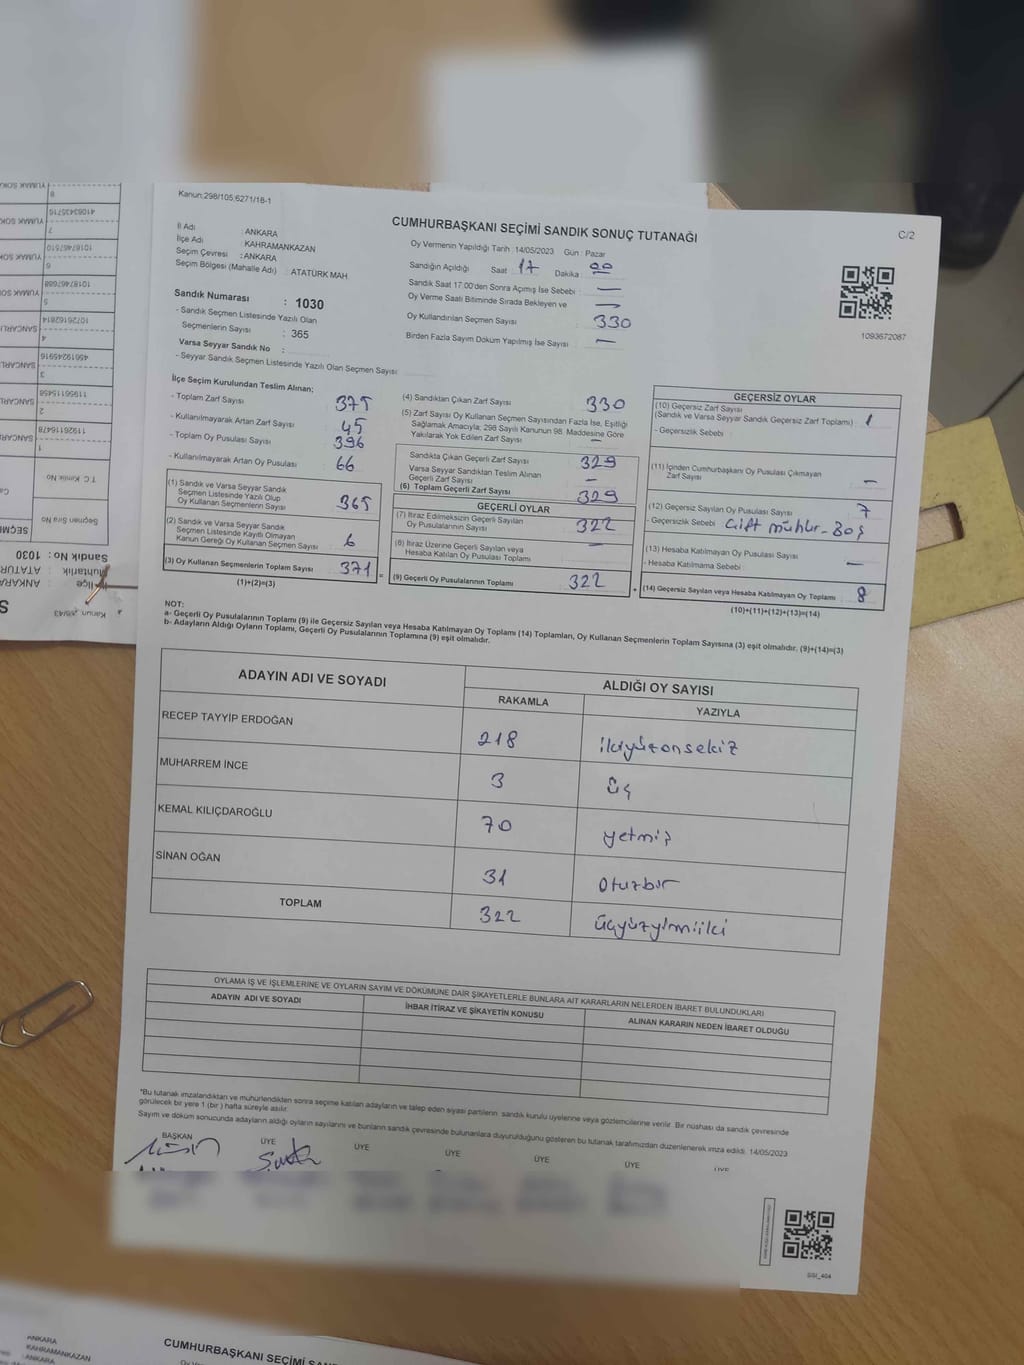 Kanun:298/105;6271/18-1
C/2
CUMHURBAŞKANI SEÇİMİ SANDIK SONUÇ TUTANAĞI
İl Adı : ANKARA
İlçe Adı : KAHRAMANKAZAN
Seçim Çevresi : ANKARA
Seçim Bölgesi (Mahalle Adı) : ATATÜRK MAH
Oy Vermenin Yapıldığı Tarih : 14/05/2023 Gün : Pazar
Sandığın Açıldığı Saat 17 Dakika 00
Sandık Saat 17:00'den Sonra Açımış İse Sebebi : —
Oy Verme Saati Bitiminde Sırada Bekleyen ve —
Oy Kullandırılan Seçmen Sayısı : 330
Birden Fazla Sayım Döküm Yapılmış İse Sayısı : —
1093672087
Sandık Numarası : 1030
- Sandık Seçmen Listesinde Yazılı Olan
Seçmenlerin Sayısı : 365
Varsa Seyyar Sandık No :
- Seyyar Sandık Seçmen Listesinde Yazılı Olan Seçmen Sayısı:
İlçe Seçim Kurulundan Teslim Alınan;
- Toplam Zarf Sayısı 375
- Kullanılmayarak Artan Zarf Sayısı 45
- Toplam Oy Pusulası Sayısı 396
- Kullanılmayarak Artan Oy Pusulası 66
(1) Sandık ve Varsa Seyyar Sandık
Seçmen Listesinde Yazılı Olup
Oy Kullanan Seçmenlerin Sayısı 365
(2) Sandık ve Varsa Seyyar Sandık
Seçmen Listesinde Kayıtlı Olmayan
Kanun Gereği Oy Kullanan Seçmen Sayısı 6
(3) Oy Kullanan Seçmenlerin Toplam Sayısı 371
(1)+(2)=(3)
(4) Sandıktan Çıkan Zarf Sayısı 330
(5) Zarf Sayısı Oy Kullanan Seçmen Sayısından Fazla İse, Eşitliği
Sağlamak Amacıyla; 298 Sayılı Kanunun 98. Maddesine Göre
Yakılarak Yok Edilen Zarf Sayısı —
Sandıkta Çıkan Geçerli Zarf Sayısı 329
Varsa Seyyar Sandıktan Teslim Alınan
Geçerli Zarf Sayısı —
(6) Toplam Geçerli Zarf Sayısı 329
GEÇERLİ OYLAR
(7) İtiraz Edilmeksizin Geçerli Sayılan
Oy Pusulalarının Sayısı 322
(8) İtiraz Üzerine Geçerli Sayılan veya
Hesaba Katılan Oy Pusulası Toplamı —
= (9) Geçerli Oy Pusulalarının Toplamı 322 +
GEÇERSİZ OYLAR
(10) Geçersiz Zarf Sayısı
(Sandık ve Varsa Seyyar Sandık Geçersiz Zarf Toplamı) : 1
- Geçersizlik Sebebi :
(11) İçinden Cumhurbaşkanı Oy Pusulası Çıkmayan
Zarf Sayısı —
(12) Geçersiz Sayılan Oy Pusulası Sayısı 7
- Geçersizlik Sebebi : Çift mühür - Boş
(13) Hesaba Katılmayan Oy Pusulası Sayısı
- Hesaba Katılmama Sebebi : —
(14) Geçersiz Sayılan veya Hesaba Katılmayan Oy Toplamı 8
(10)+(11)+(12)+(13)=(14)
NOT:
a- Geçerli Oy Pusulalarının Toplamı (9) ile Geçersiz Sayılan veya Hesaba Katılmayan Oy Toplamı (14) Toplamları, Oy Kullanan Seçmenlerin Toplam Sayısına (3) eşit olmalıdır. (9)+(14)=(3)
b- Adayların Aldığı Oyların Toplamı, Geçerli Oy Pusulalarının Toplamına (9) eşit olmalıdır.
ADAYIN ADI VE SOYADI ALDIĞI OY SAYISI
RAKAMLA YAZIYLA
RECEP TAYYİP ERDOĞAN 218 ikiyüzonsekiz
MUHARREM İNCE 3 üç
KEMAL KILIÇDAROĞLU 70 yetmiş
SİNAN OĞAN 31 Otuzbir
TOPLAM 322 üçyüzyirmiiki
OYLAMA İŞ VE İŞLEMLERİNE VE OYLARIN SAYIM VE DÖKÜMÜNE DAİR ŞİKAYETLERLE BUNLARA AİT KARARLARIN NELERDEN İBARET BULUNDUKLARI
ADAYIN ADI VE SOYADI İHBAR İTİRAZ VE ŞİKAYETİN KONUSU ALINAN KARARIN NEDEN İBARET OLDUĞU
*Bu tutanak imzalandıktan ve mühürlendikten sonra seçime katılan adayların ve talep eden siyasi partilerin, sandık kurulu üyelerine veya gözlemcilerine verilir. Bir nüshası da sandık çevresinde
görülecek bir yere 1 (bir ) hafta süreyle asılır.
Sayım ve döküm sonucunda adayların aldığı oyların sayılarını ve bunların sandık çevresinde bulunanlara duyurulduğunu gösteren bu tutanak tarafımızdan düzenlenerek imza edildi. 14/05/2023
BAŞKAN ÜYE ÜYE ÜYE ÜYE ÜYE ÜYE
SSI_404
YUMAK
8
41083435716
YUMAK
7
10187467510
YUMAK
6
10187467688
YUMAK
5
10726192814
SANCARLI
4
45619245916
3
11956115458
SANCARLI
2
11926116478
1
T.C Kimlik No
Seçmen Sıra No
SEÇM
Sandık No : 1030
Muhtarlık : ATATÜR
İlçe : ANKARA
Kanun
ANKARA
KAHRAMANKAZAN
: ANKARA
CUMHURBAŞKANI SEÇİMİ SAN